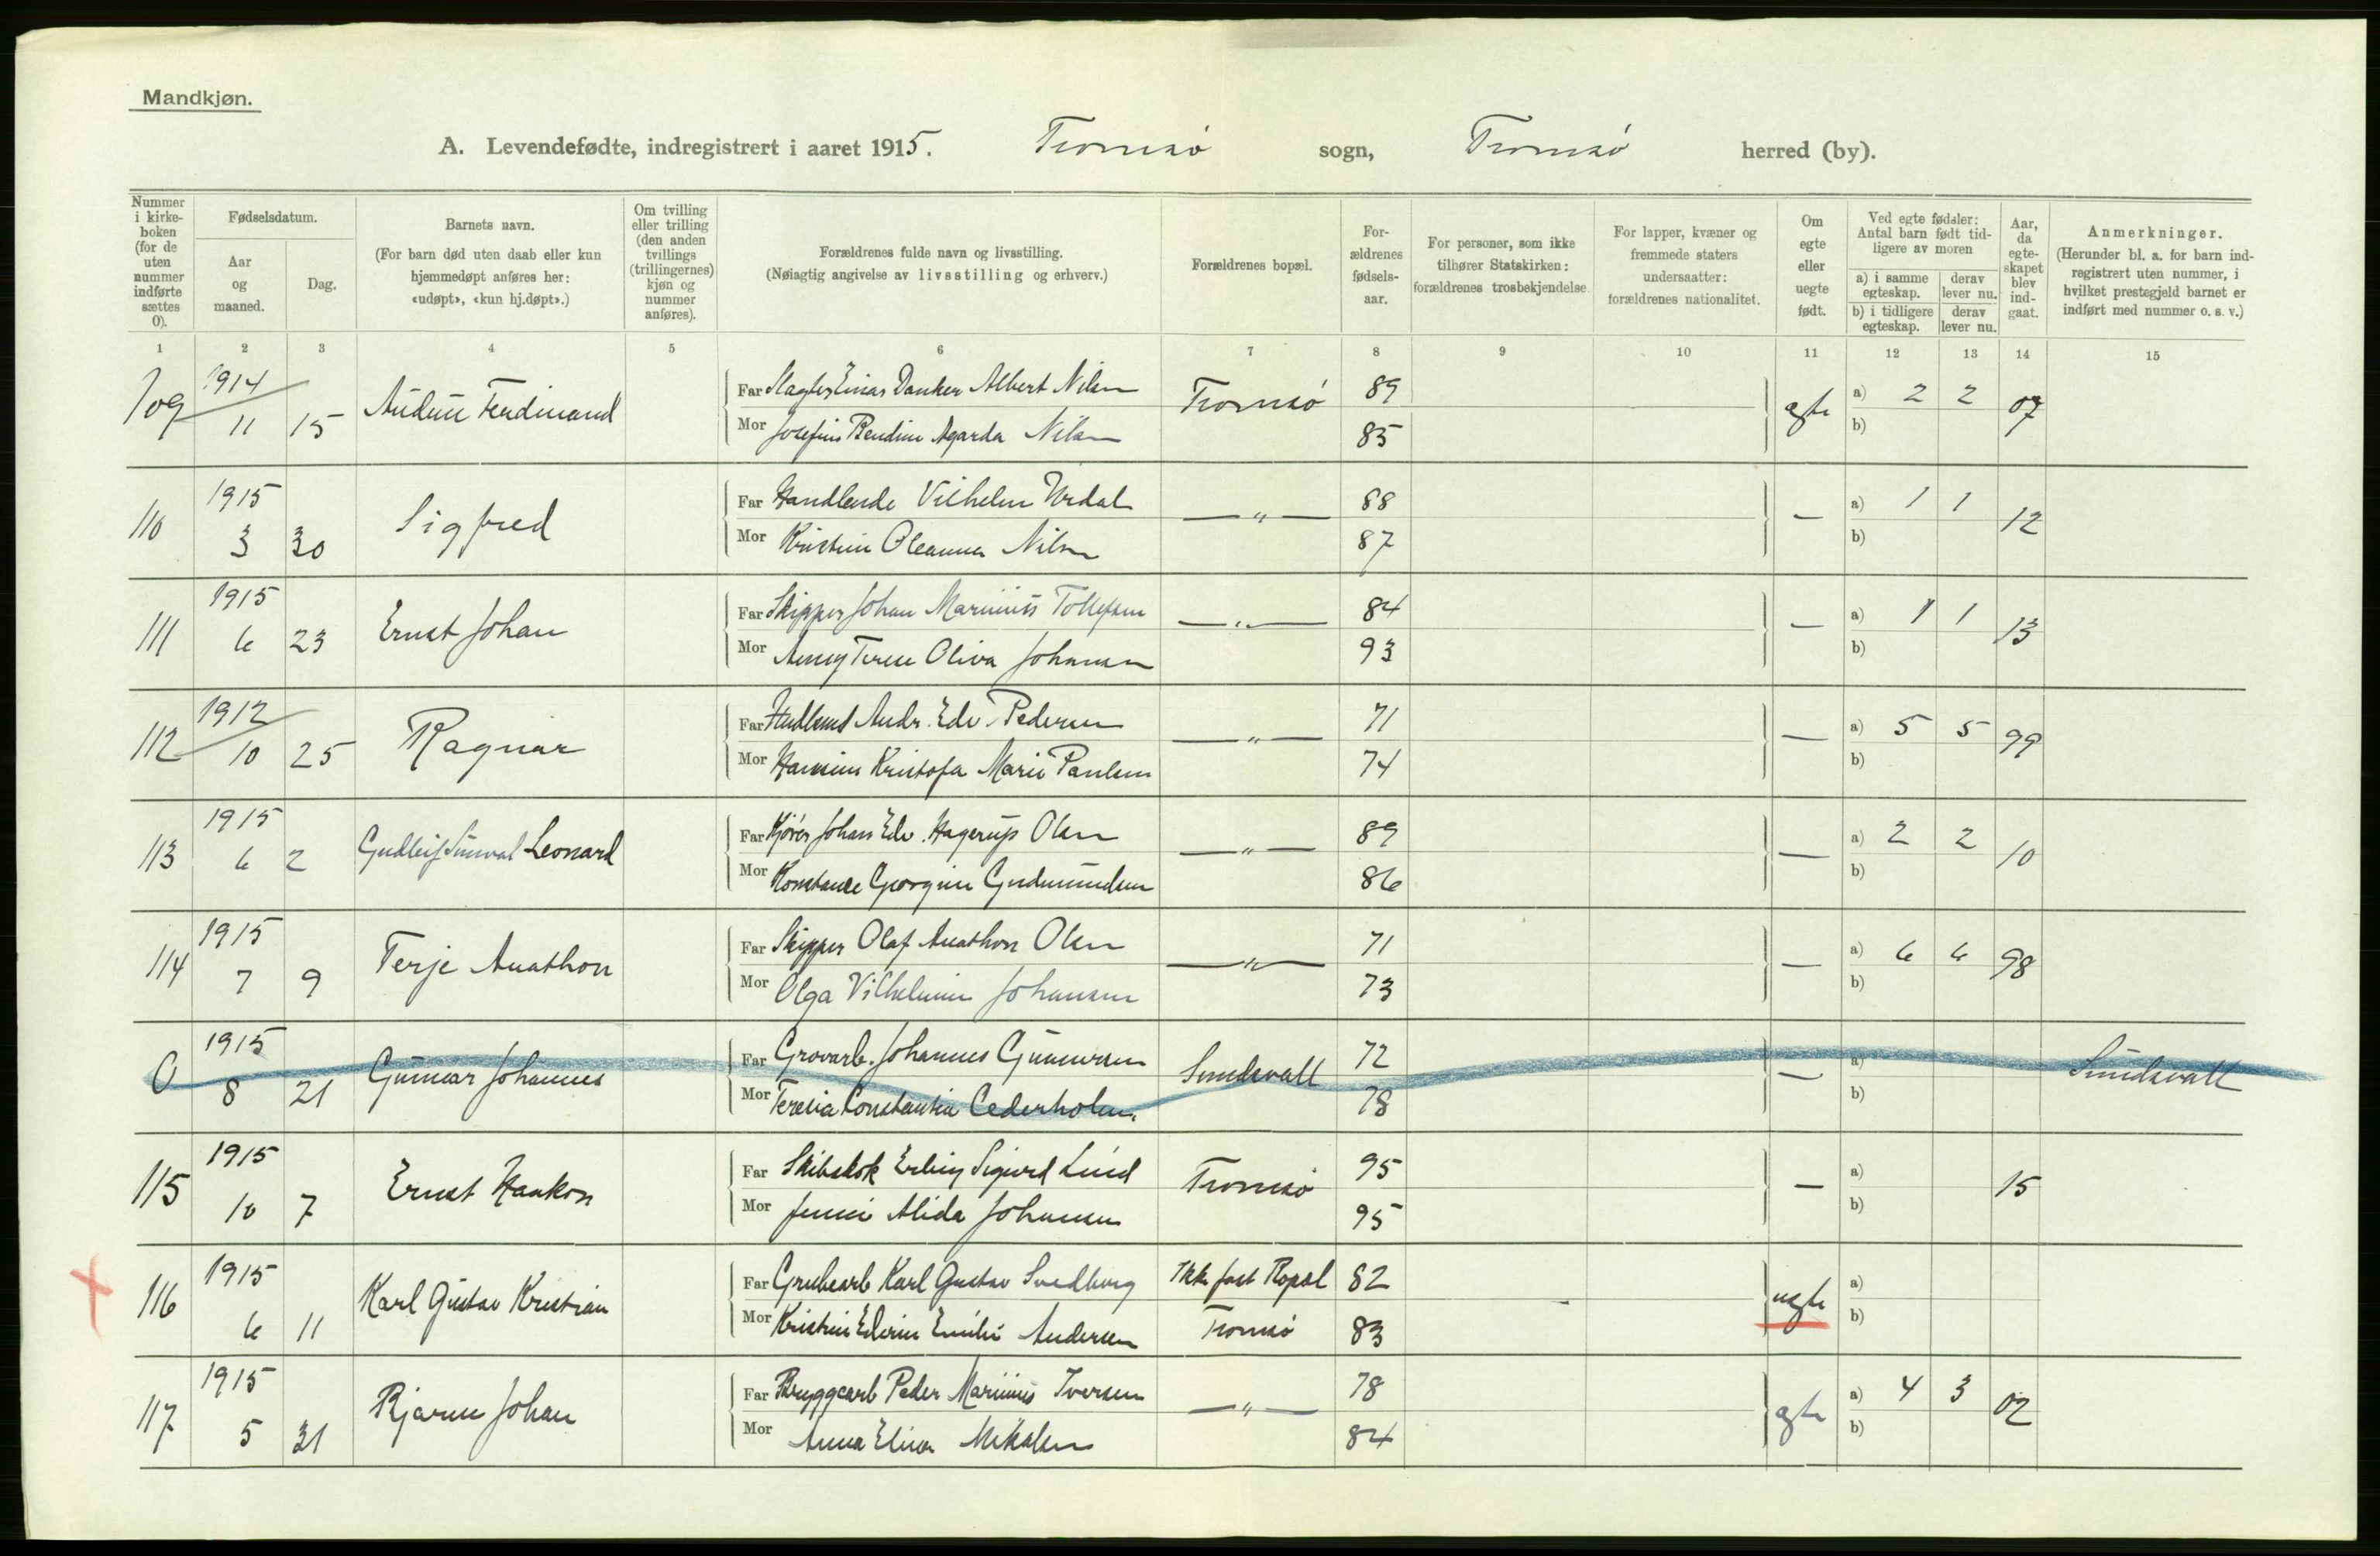 Mandkjøn.
A. Levendefødte, indregistrert i aaret 1915. Tromsø sogn, Tromsø herred (by).
Nummer i kirkeboken (for de uten nummer indførte sættes 0).
Fødselsdatum.
Aar og maaned.
Dag.
Barnets navn.
(For barn død uten daab eller kun hjemmedøpt anføres her: «udøpt», «kun hj.døpt».)
Om tvilling eller trilling (den anden tvillings (trillingernes) kjøn og nummer anføres).
Forældrenes fulde navn og livsstilling.
(Nøiagtig angivelse av livsstilling og erhverv.)
Forældrenes bopæl.
Forældrenes fødselsaar.
For personer, som ikke tilhører Statskirken: forældrenes trosbekjendelse
For lapper, kvæner og fremmede staters undersaatter: forældrenes nationalitet.
Om egte eller uegte født.
Ved egte fødsler: Antal barn født tidligere av moren
a) i samme egteskap.
derav lever nu.
b) i tidligere egteskap.
derav lever nu.
Aar, da egteskapet blev indgaat.
Anmerkninger.
(Herunder bl. a. for barn indregistrert uten nummer, i hvilket prestegjeld barnet er indført med nummer o. s. v.)
1 2 3 4 5 6 7 8 9 10 11 12 13 14 15
109 1914 11 15 Audun Ferdinand
Far Slagter Einar Danker Albert Nilsen Tromsø 89 egte a) 2 2 07
Mor Josefine Bendine Agarda Nilsen 85 b)
110 1915 3 30 Sigfred
Far Handlende Vilhelm Urdal —„— 88 — a) 1 1 12
Mor Kristine Oleanna Nilsen 87 b)
111 1915 6 23 Ernst Johan
Far Skipper Johan Marinius Tollefsen —„— 84 — a) 1 1 13
Mor Terese Oliva Johansen 93 b)
112 1912 10 25 Ragnar
Far Andr. Edv. Pedersen —„— 71 — a) 5 5 99
Mor Kristofa Marie Paulsen 74 b)
113 1915 6 2 Gudleif Leonard
Far Johan Edv. Hagerup Olsen —„— 89 — a) 2 2 10
Mor Konstance Georgine Gudmundsen 86 b)
114 1915 7 9 Terje Anathon
Far Skipper Olaf Anathon Olsen —„— 71 — a) 6 6 98
Mor Olga Vilhelmine Johansen 73 b)
0 1915 8 21 Gunnar Johannes
Far Grovarb. Johannes Gunnarsen Sundsvall 72 — a) Sundsvall
Mor Teresia Constantia Cederholm. 78 b)
115 1915 10 7 Ernst Haakon
Far Skibskok Erling Sigurd Lund Tromsø 95 — a) 15
Mor Jenni Alida Johansen 95 b)
116 1915 6 11 Karl Gustav Kristian
Far Grubearb Karl Gustav Svedberg Ikke fast Bopæl 82 uegte a)
Mor Kristine Edvine Emilie Andersen Tromsø 83 b)
117 1915 5 31 Bjarne Johan
Far Bryggearb Peder Marinius Iversen —„— 78 egte a) 4 3 02
Mor Anna Elina Mikalsen 84 b)